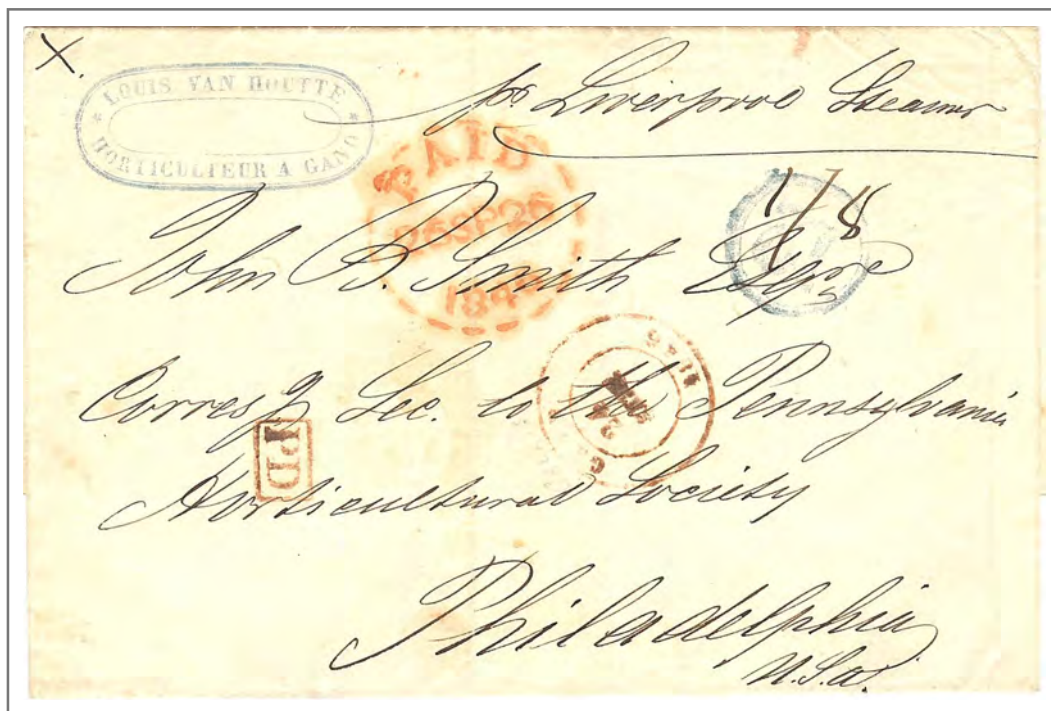 X.
LOUIS VAN HOUTTE
* *
HORTICULTEUR A GAND
pr Liverpool Steamer
PAID
26SP26
184
1/8
John B. Smith Esqre
Correspg Sec. to the Pennsylvania
PD
Horticultural Society
Philadelphia
U.S.A.